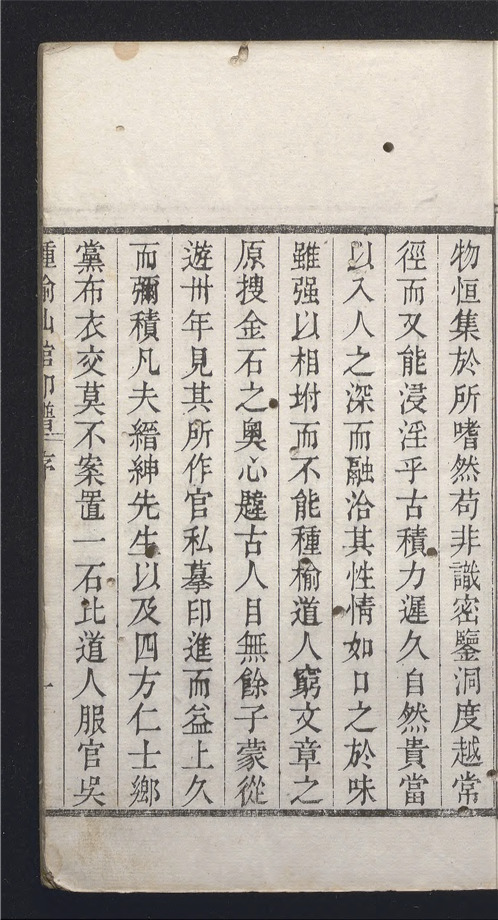 物恒集於所嗜然苟非識密鑒洞度越常
徑而又能浸淫乎古積力遲久自然貴當
以入人之深而融洽其性情如口之於味
雖强以相坿而不能種榆道人窮文章之
原搜金石之奧心躄古人目無餘子蒙從
遊卅年見其所作官私摹印進而益上久
而彌積凡夫縉紳先生以及四方仁士鄉
黨布衣交莫不案置一石此道人服官吳
種榆仙館印譜 序 一